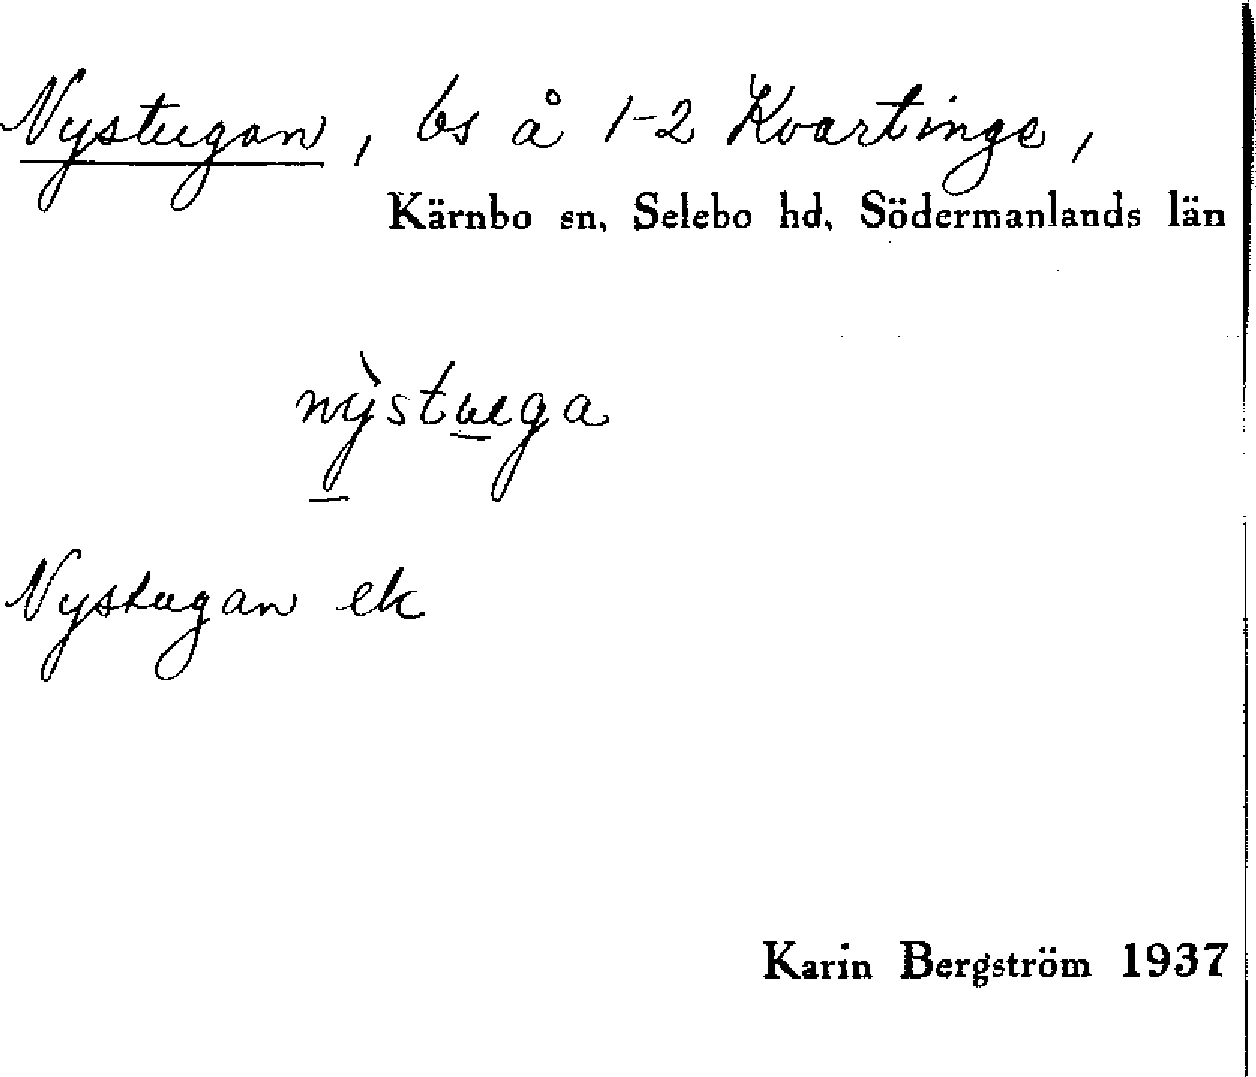 Nystugan, bs å 1-2 Kvartinge,
Kärnbo sn, Selebo hd, Södermanlands län
nỳstuga
Nystugan ek
Karin Bergström 1937